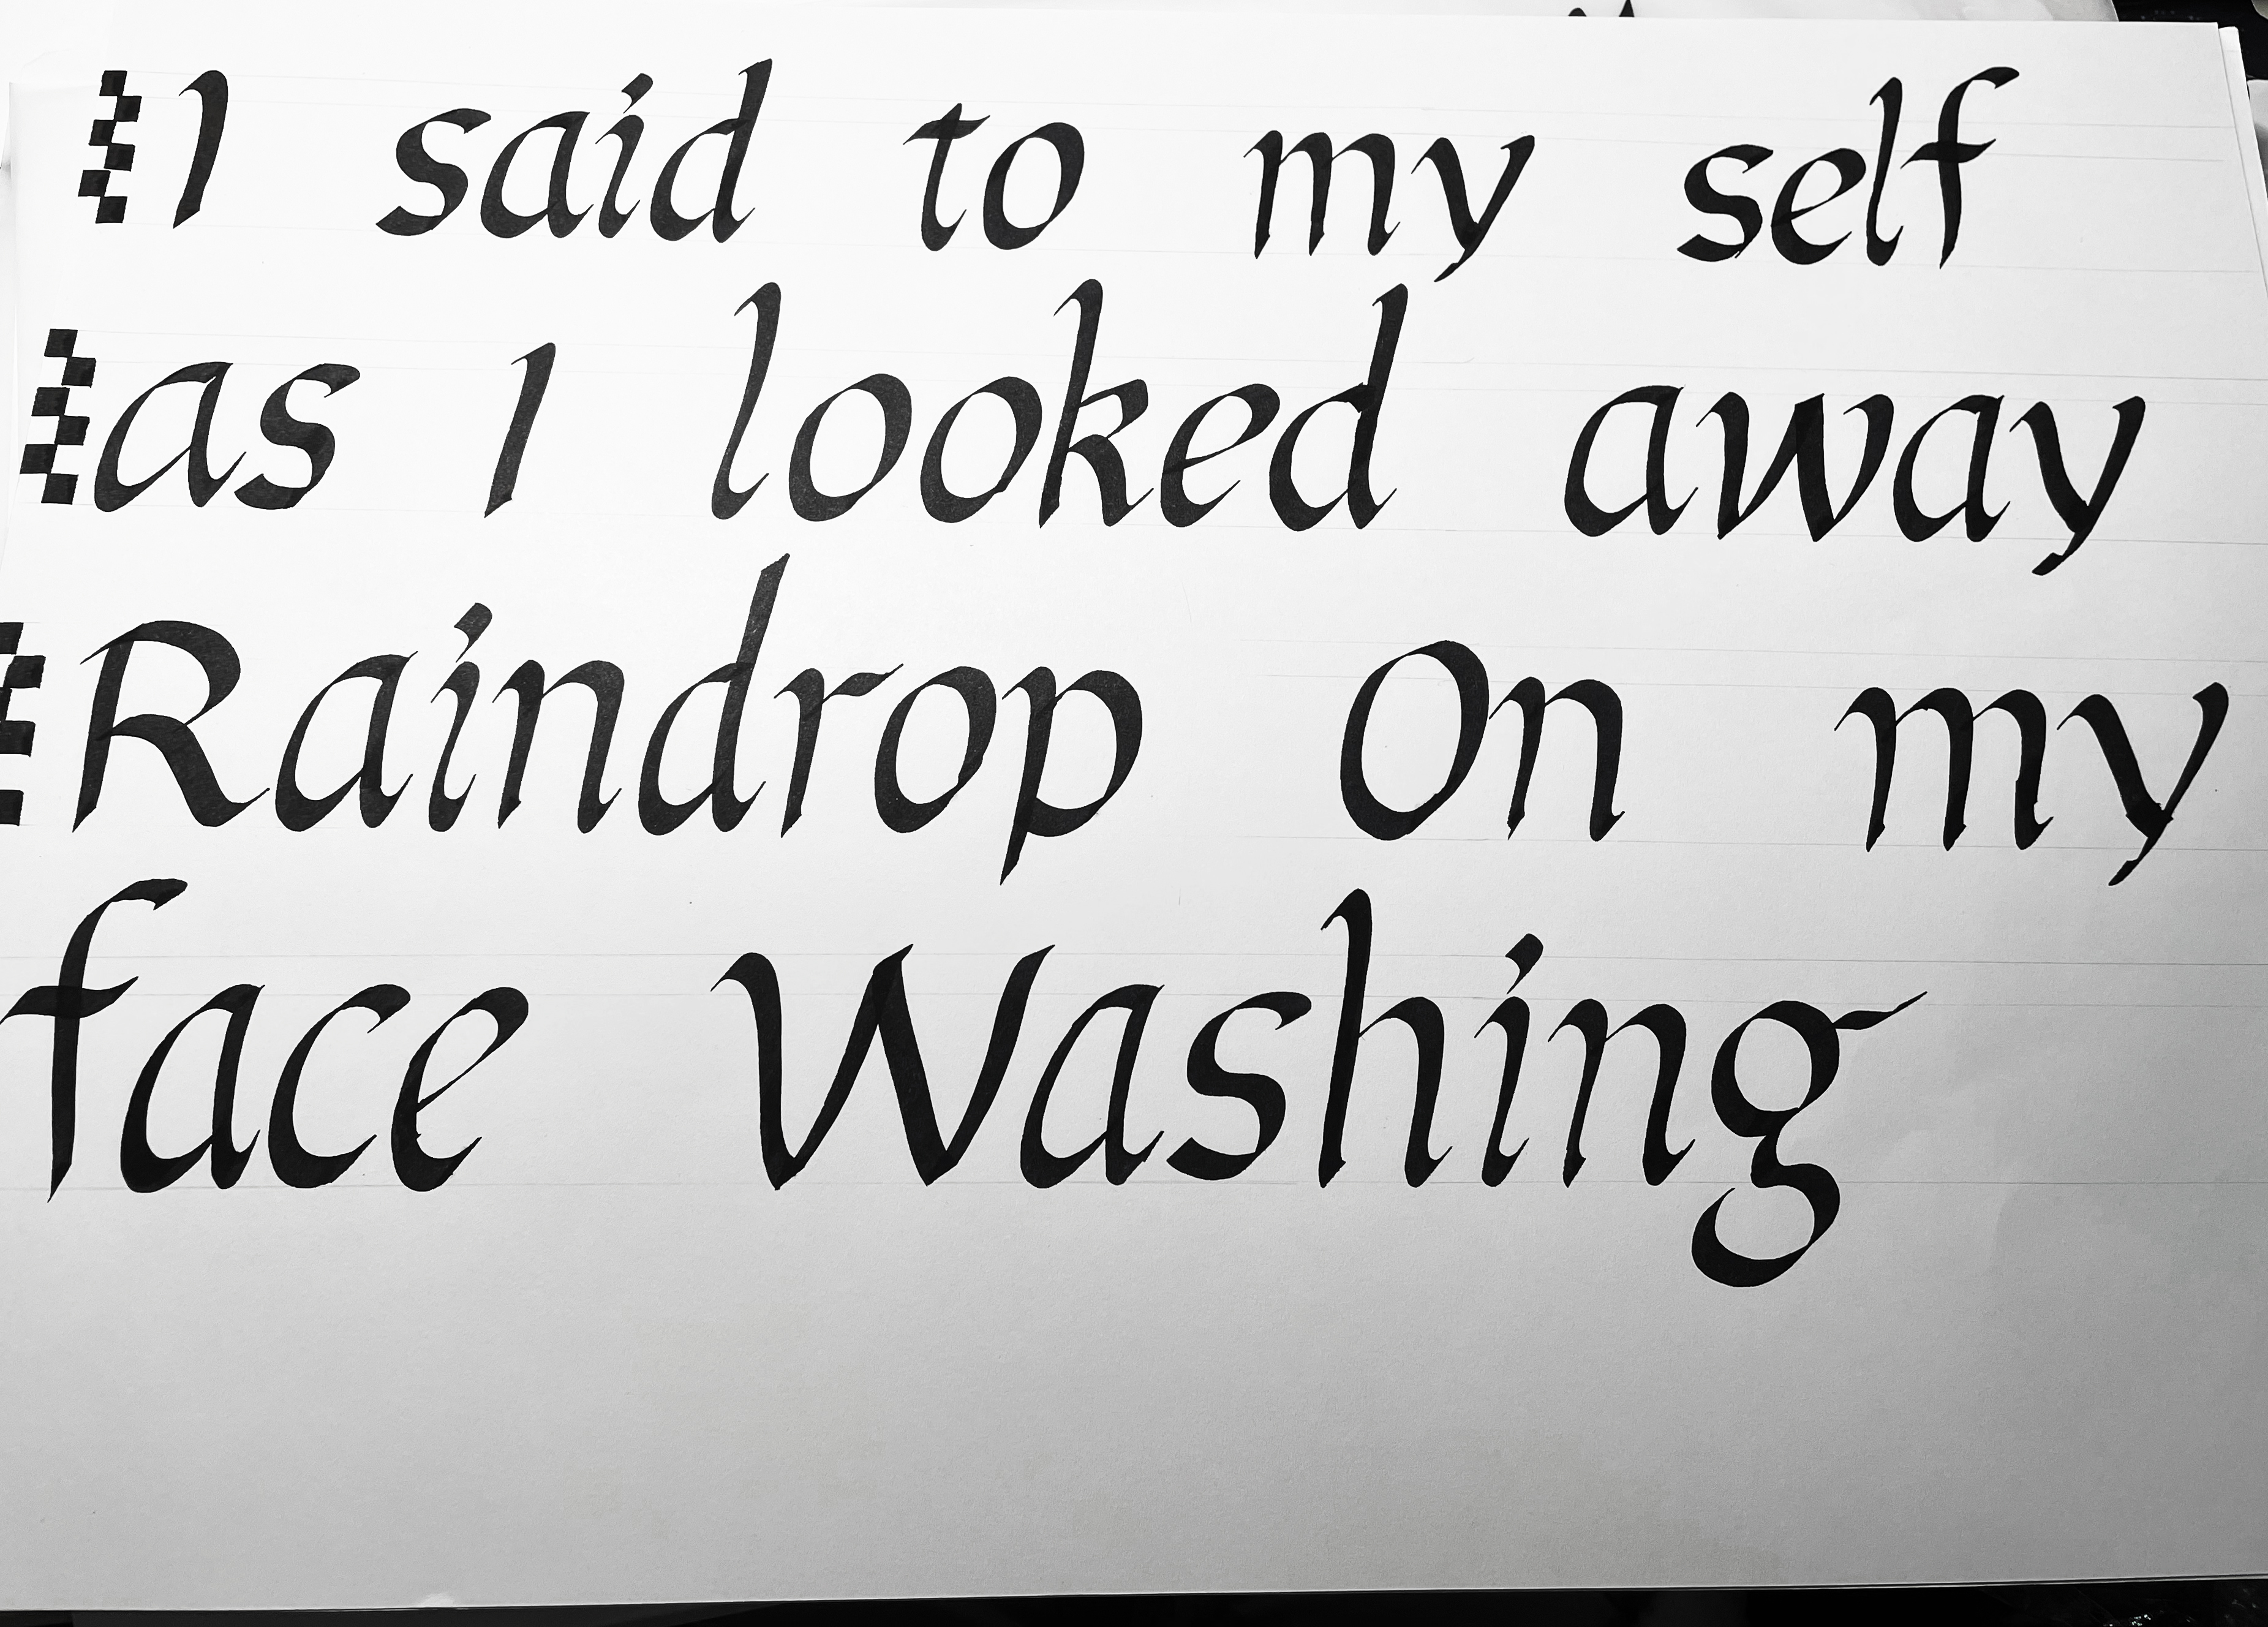 I said to my self
as I looked away
Raindrop On my
face Washing